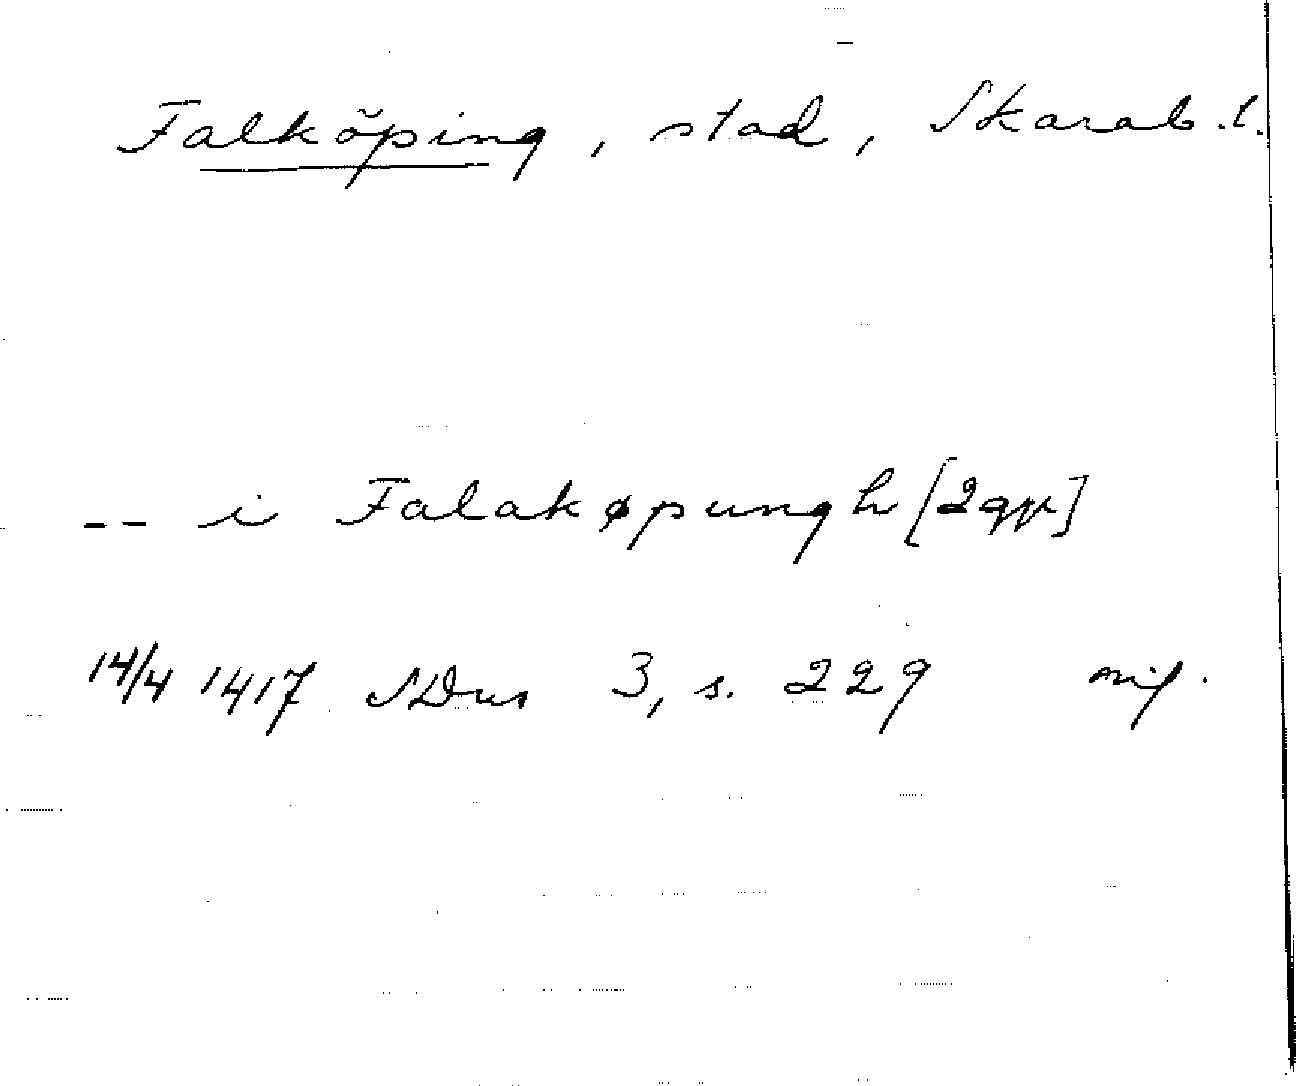 Falköping, stad, Skarab. l.
-- i Falakøpungh [2ggr]
14/4 1417 SDns 3, s. 229